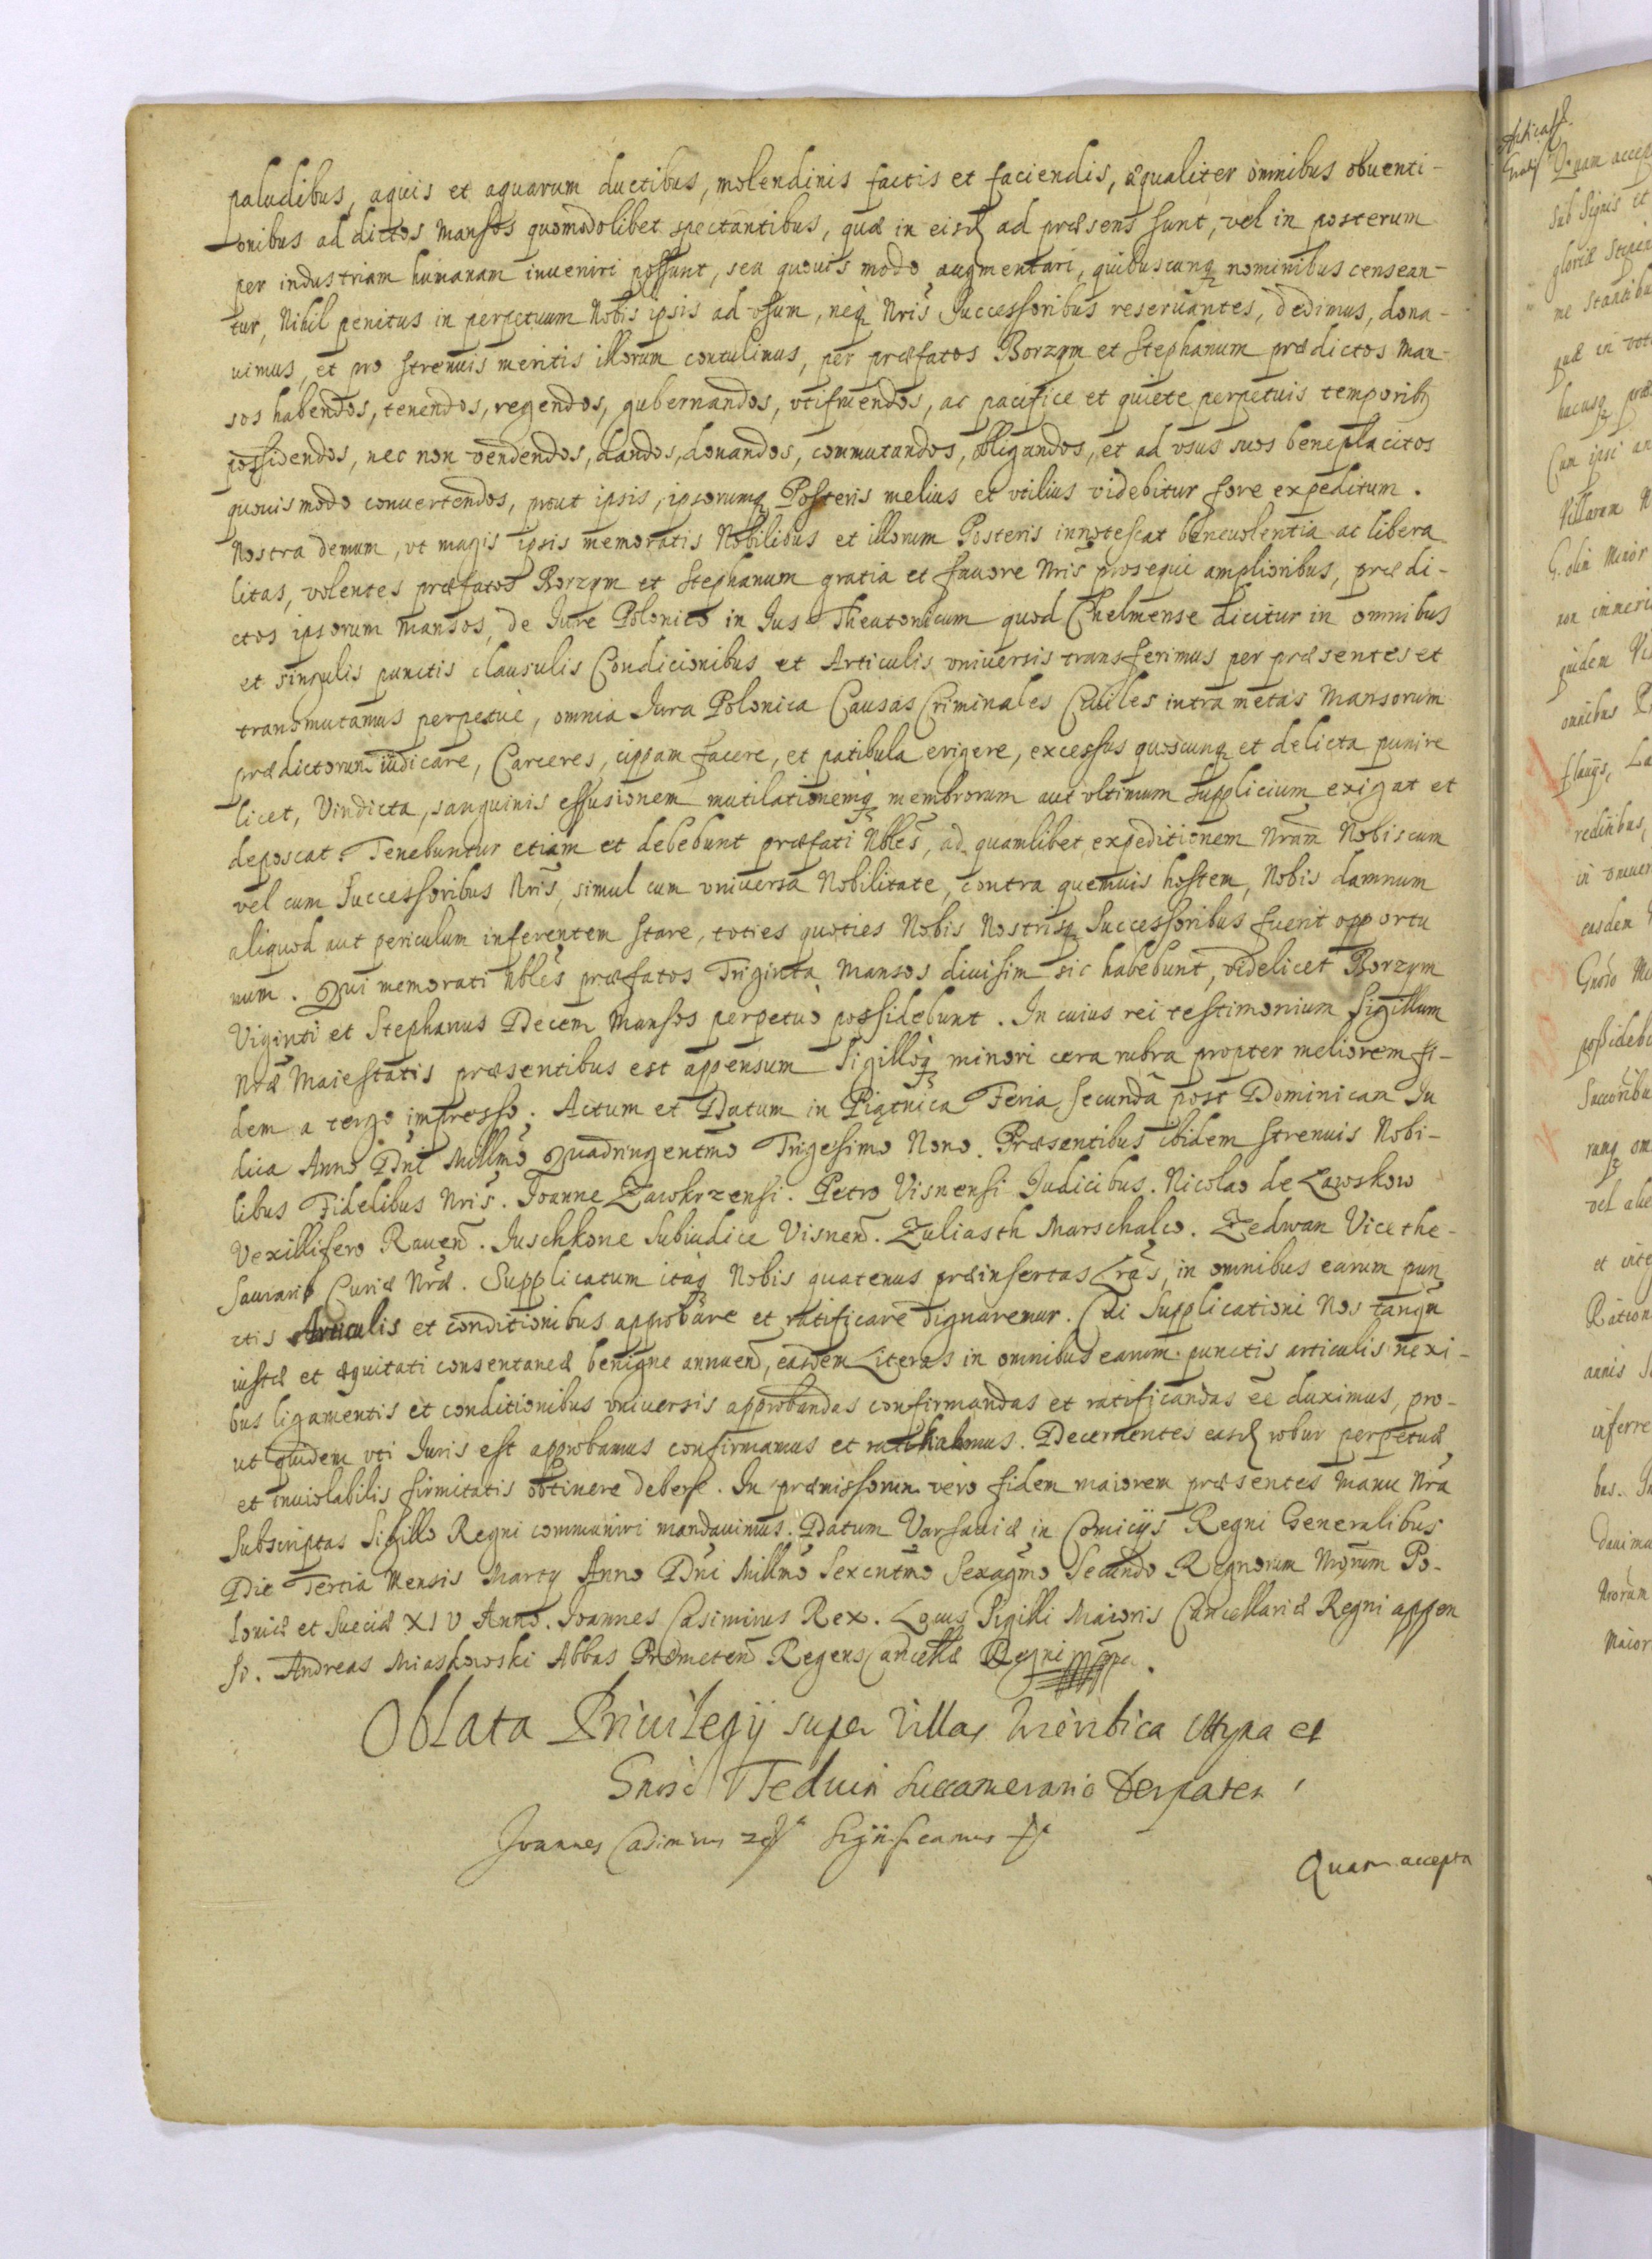 paludibus, aquis et aquarum ductibus, molendinis factis et faciendis, æqualiter omnibus obuenti-
onibus ad dictos Mansos quomodolibet spectantibus, quæ in eisd ad præsens sunt, vel in posterum
per industriam humanam inueniri possunt, seu quouis modo augmentari, quibuscunq nominibus censean-
tur, Nihil penitus in perpetuum Nobis ipsis ad vsum, neq Nris Successoribus reseruantes, dedimus, dona-
uimus, et pro strenuis meritis illorum contulimus, per præfatos Borzym et Stephanum prædictos Man-
sos habendos, tenendos, regendos, gubernandos, vtifruendos, ac pacifice et quiete perpetuis temporib
possidendos, nec non vendendos, dandos, donandos, commutandos, obligandos, et ad vsus suos beneplacitos
quouis modo conuertendos, prout ipsis, ipsorumq Posteris melius et vtilius videbitur fore expeditum.
Nostra demum, vt magis ipsis memoratis Nobilibus et illorum Posteris innotescat beneuolentia ac libera
litas, volentes præfatos Borzym et Stephanum gratia et fauore Nris prosequi amplioribus, prædi-
ctos ipsorum Mansos, de Iure Polonico in Ius Theutonicum quod Chelmense dicitur in omnibus
et singulis punctis clausulis Condicionibus et Articulis vniuersis transferimus per præsentes et
transmutamus perpetuè, omnia Iura Polonica Causas Criminales Ciuiles intra metas Mansorum
prædictorum iudicare, Carceres, cippam facere, et patibula erigere, excessus quoscunq et delicta punire
licet, Vindicta, sanguinis effusionem mutilationemq membrorum aut vltimum supplicium exigat et
deposcat. Tenebuntur etiam et debebunt præfati Nbles, ad quamlibet expeditionem Nram Nobiscum
vel cum Successoribus Nris, simul cum vniuersa Nobilitate, contra quemuis hostem, Nobis damnum
aliquod aut periculum inferentem stare, toties quoties Nobis Nostrisq Successoribus fuerit opportu
num. Qui memorati Nbles præfatos Triginta Mansos diuisim sic habebunt, videlicet Borzym
Viginti et Stephanus Decem Mansos perpetuò possidebunt. In cuius rei testimonium Sigillum
Nræ Maiestatis præsentibus est appensum Sigilloq minori cera rubra propter meliorem fi-
dem a tergo impresso. Actum et Datum in Piątnica Feria secunda post Dominicam Iu
dica Anno Dni Millmo Quadringentmo Trigesimo Nono. Præsentibus ibidem strenuis Nobi-
libus Fidelibus Nris. Joanne Zawkrzensi. Petro Visnensi Judicibus. Nicolao de Lawskow
Vexillifero Rauen. Juschkone Subiudice Visnen. Zuliasth Marschalco. Zedwan Vicethe-
saurario Curiæ Nræ. Supplicatum itaq Nobis quatenus præinsertas Lras, in omnibus earum pun
ctis Articulis et conditionibus approbare et ratificare dignaremur. Cui Supplicationi Nos tanqm
iustæ et æquitati consentaneæ benigne annuen, easdem Literas in omnibus earum punctis articulis nexi-
bus ligamentis et conditionibus vniuersis approbandas confirmandas et ratificandas ee duximus, pro-
ut quidem vti Iuris est approbamus confirmamus et ratihabmus. Decernentes easd robur perpetuæ
et inuiolabilis firmitatis obtinere debere. In præmissorum vero fidem maiorem præsentes manu Nra
Subscriptas Sigillo Regni communiri mandauimus. Datum Varsauiæ in Comicijs Regni Generalibus
Die Tertia Mensis Marty Anno Dni Millmo Sexcntmo Sexagmo Secundo Regnorum Nrorum Po-
loniæ et Sueciæ XIV Anno. Joannes Casimirus Rex. Locus Sigilli Maioris Cancellariæ Regni appen
si. Andreas Miaskowski Abbas Præmeten Regens Cancellæ Regni mppa.
Oblata Priuilegij super Villas
Gnoso Teduin Succamerario Derpaten
Joannes Casimirus Significamus
Quam accepta
Quam accep
Sub Signis et
gloriæ
me stantibu
quæ in
hacusq præ
Cum ipsi an
Villarum N
G. olim Mior
non immeri
quidem
omnibus
fluujs, La
reditibus,
in
easdem
Gnoso
possideb
Succoribu
rumq om
vel alie
et inte
Ration
annis
inferre
bus. In
Nrorum
Maior